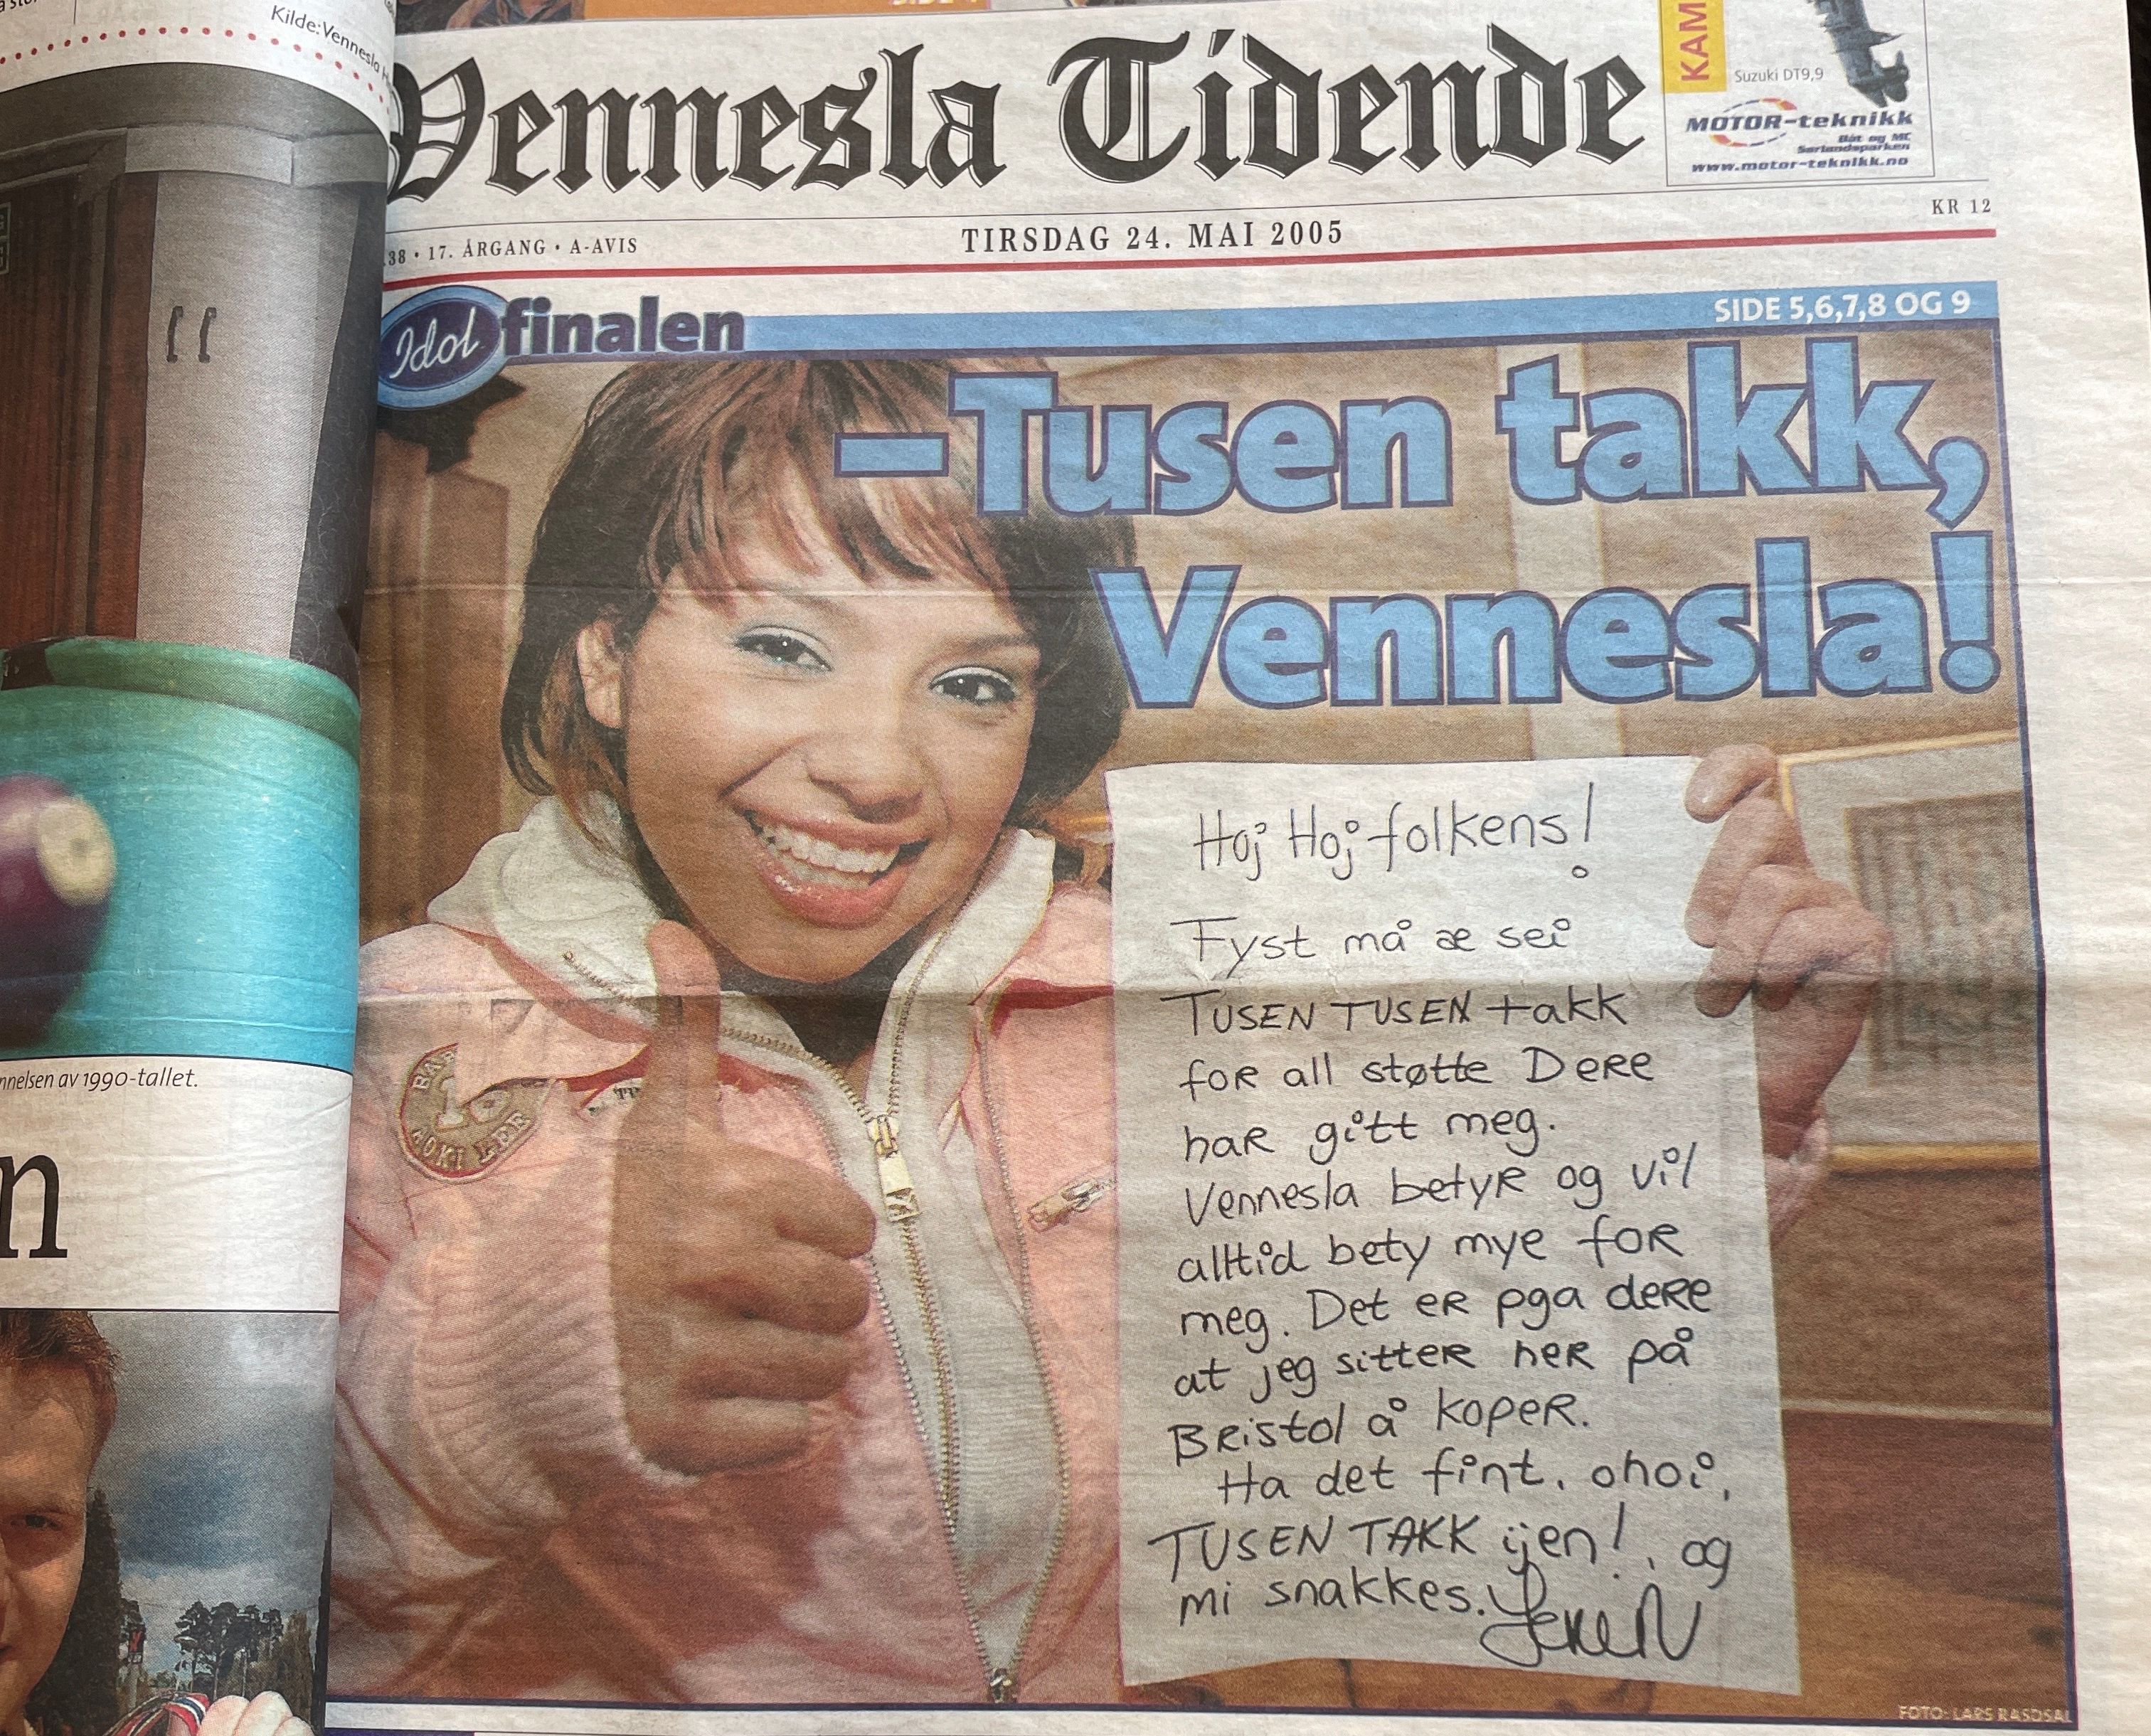 Kilde: Vennesla
nnelsen av 1990-tallet.
n
Vennesla Tidende
KAM
Suzuki DT9,9
MOTOR-teknikk
Båt og MC
Sørlandsparken
www.motor-teknikk.no
38 • 17. ÅRGANG • A-AVIS
TIRSDAG 24. MAI 2005
KR 12
Idol finalen
SIDE 5,6,7,8 OG 9
–Tusen takk,
Vennesla!
10
Hoj Hoj folkens!
Fyst må æ sei
TUSEN TUSEN takk
for all støtte Dere
har gitt meg.
Vennesla betyr og vil
alltid bety mye for
meg. Det er pga dere
at jeg sitter her på
Bristol å koper.
Ha det fint. ohoi,
TUSEN TAKK ijen!, og
mi snakkes.
FOTO: LARS RASDSAL